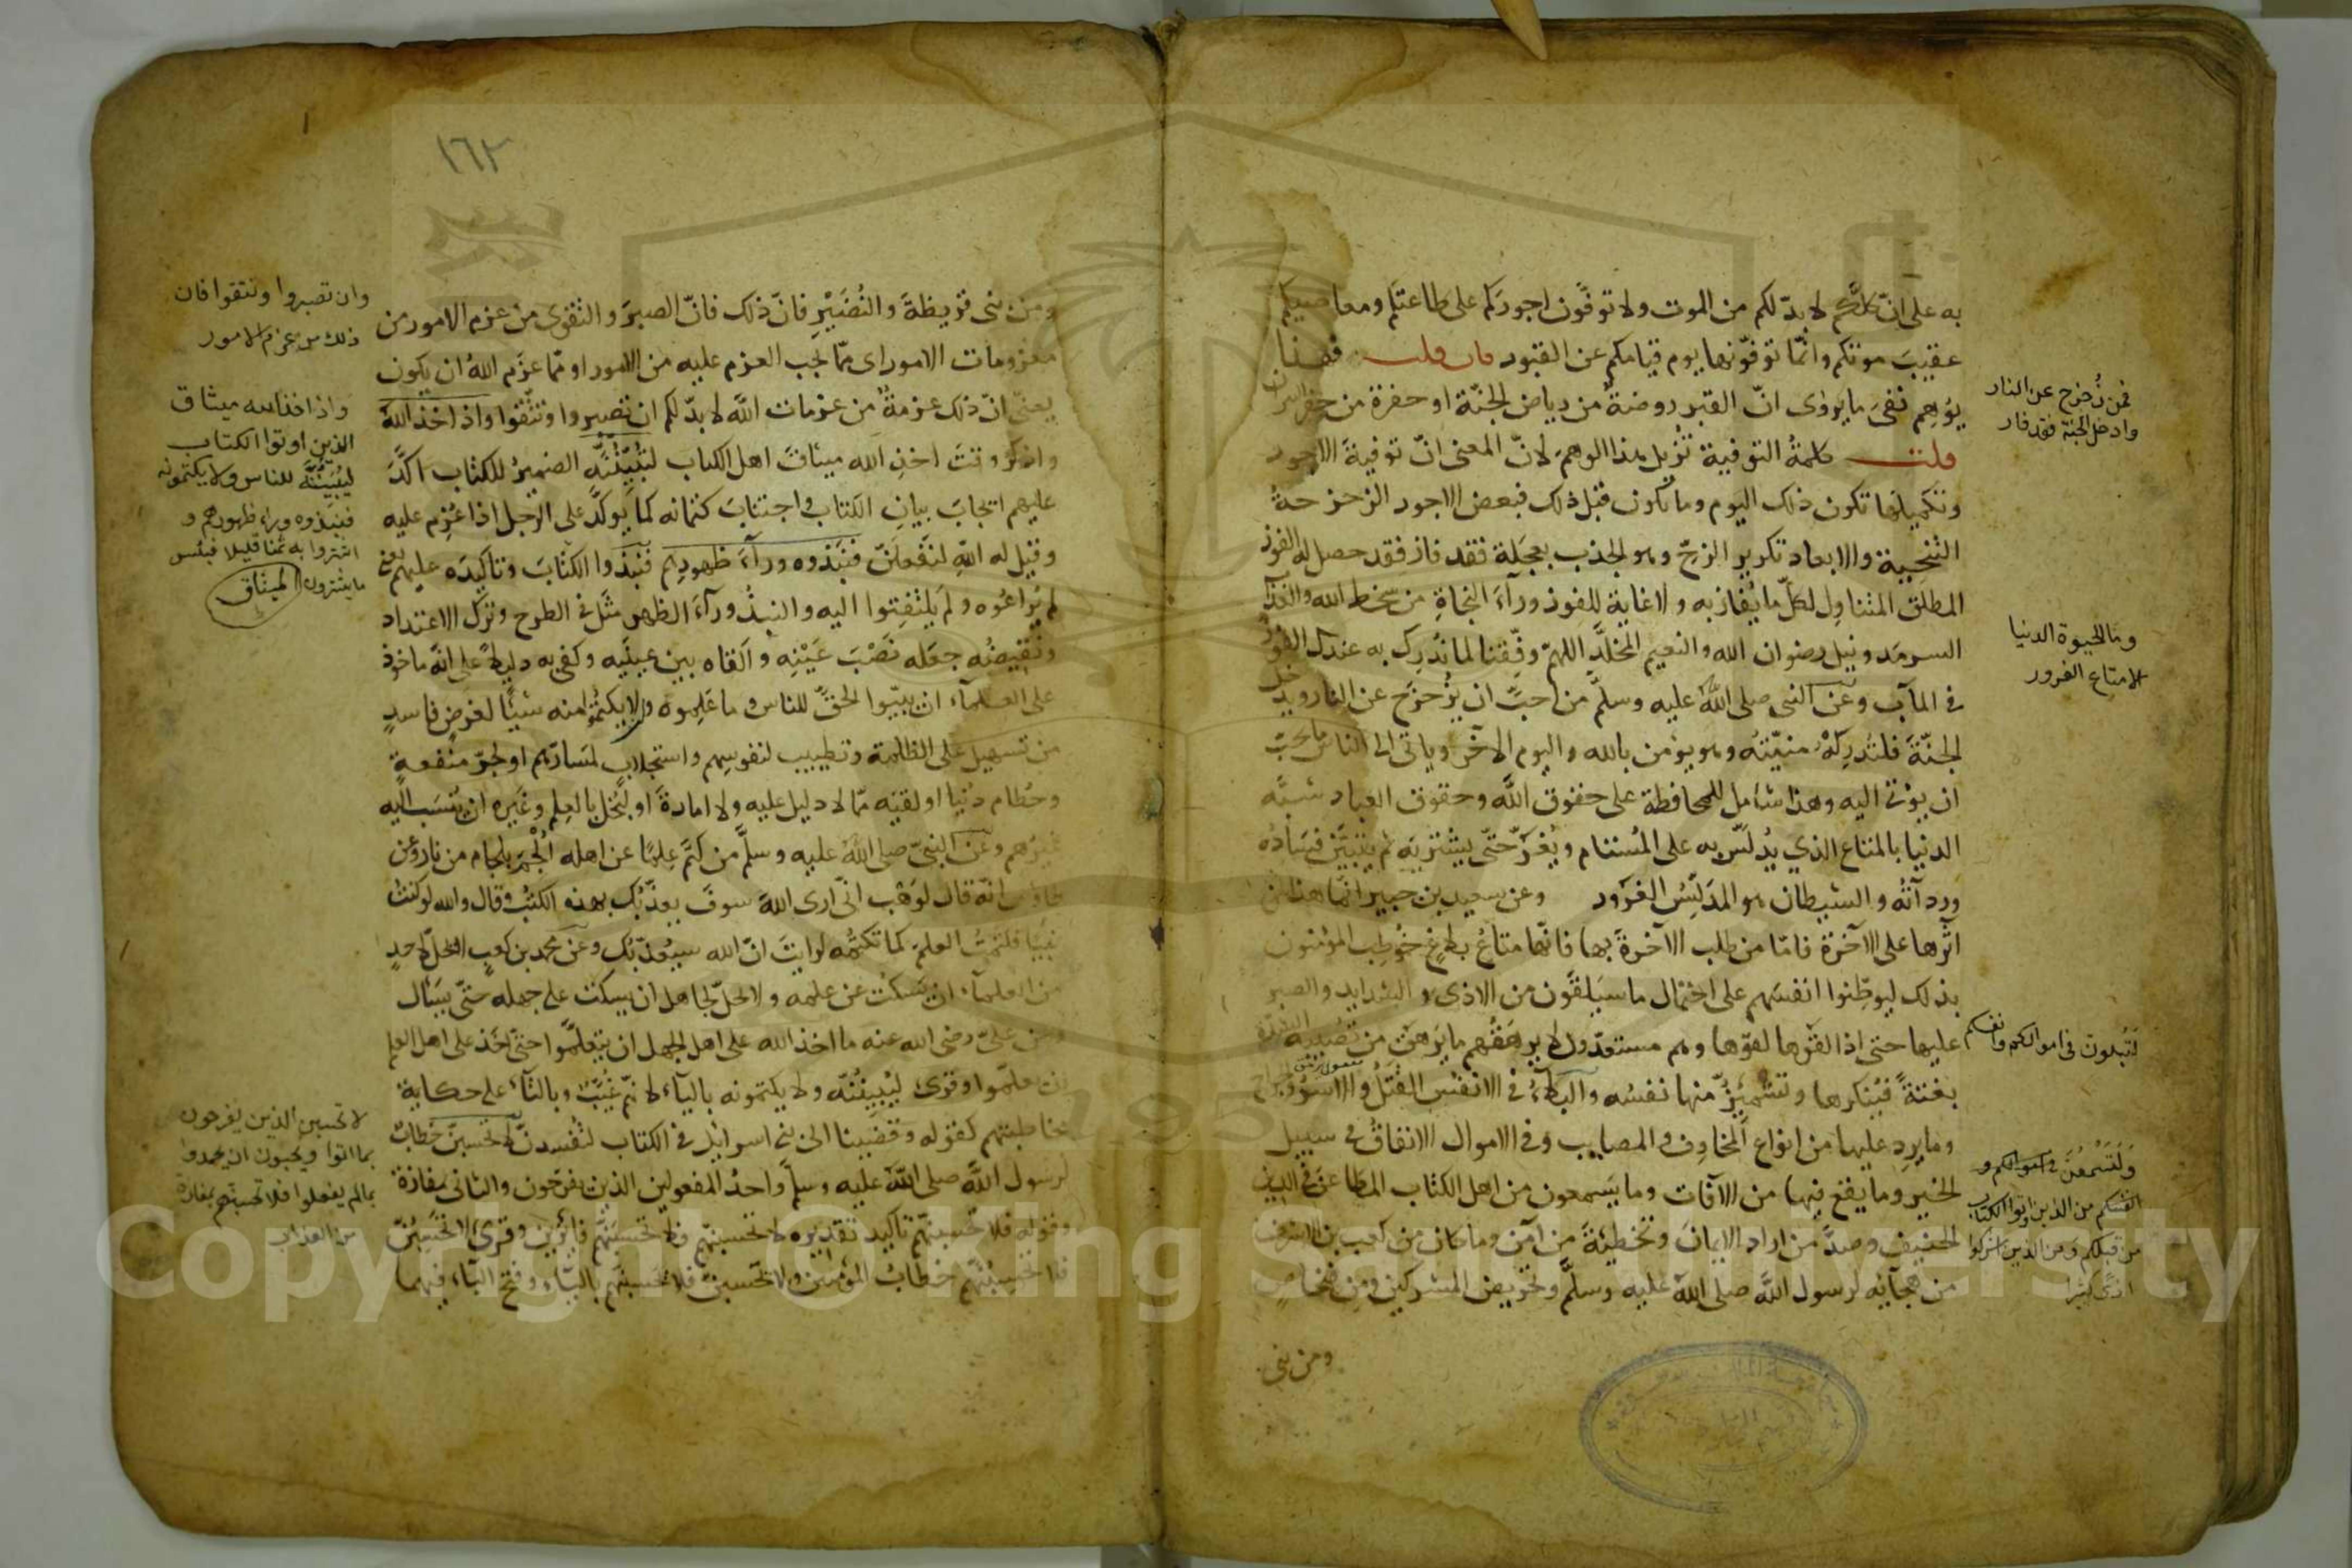 به على انّ كلّكم لا بدّ لكم من الموت ولا توفَّون اجوركم على طاعتكم ومعاصيكم
عقيبَ موتكم وانّما توفّونها يوم قيامكم عن القبور فان قلت فهذا
يوُهِم نفىَ ما يروٰى انّ القبر روضةٌ من رياض الجنّة او حفرة من حفر النيران
قلت كلمةُ التوفية تُزيل هذا الوهمَ لانّ المعنى انّ توفيةَ الاجور
وتكميلَها تكون ذلك اليوم وما تكون قبل ذلك فبعض الاجور الزحزحةُ
التنحيية والابعاد تكرير الزحّ وهو الجذب بعجَلة فقد فاز فقد حصل له الفوز
المطلق المتناوِل لكلّ ما يُفاز به ولا غاية للفوز ورآءَ النجاةِ من سخط الله والعذاب
السرمَد ونيل رضوان الله والنعيم المخلَّدِ اللهمّ وفِّقنا لما نُدرِك به عندك الفوزَ
فى المآب وعن النبى صلى اللهُ عليه وسلّم من احبَّ ان يُزحزَح عن النار ويدخل
الجنّةَ فلتُدرِكْهُ منيّتُه وهو يؤمن بالله واليوم الآخر وياتى الى الناس ما يحبّ
ان يؤتى اليه وهذا شامل للمحافظة على حقوق اللّٰه وحقوق العباد شبّه
الدنيا بالمتاع الذي يُدلَّس به على المُستام ويُغَرّ حتّى يشتريَه ثم يتبيَّن فسادُه
ورداءتُه والشيطان هو المدَلِّسُ الغرَور وعن سعيد بن جبير انّما هذا لمن
آثرها على الآخرة فامّا من طلب الآخرةَ بها فانّها متاعُ بلاغٍ خُوطِب المؤمنون
بذلك ليوطِّنوا انفسَهم على احتمال ما سيَلقَون من الاذى والشدايد والصبر
عليها حتى اذا لقَوها لقوّها وهم مستعدّون لا يرهَقُهم ما يَرهَق من تُصيبه الشدّة
بغتةً فيُنكرها وتشمئِزّ منها نفسُه والبلاءُ فى الانفس القتلُ والاسرُ والجراح
وما يرِد عليها من انواع المخاوف والمصايب وفى الاموال الانفاقُ فى سبيل
الخير وما يقع فيها من الآفات وما يَسمعون من اهل الكتاب المطاعنَ فى الدين
الحنيف وصدَّ من اراد الايمانَ وتخطيئةَ من آمن وما كان من كعب بن الاشرف
من هجآئه لرسول اللّٰه صلى اللهُ عليه وسلّم وتحريض المشركين ومن فنحاص
ومن بنى
فمن زُحزح عن النار
وادخل الجنة فقد فاز
وما الحيوة الدنيا
الا متاع الغرور
لَتُبلون فى اموالكم وانفسكم
وَلَتَسْمَعُنَّ
من الذين اوتوا الكتاب
من قبلكم ومن الذين اشركوا
اذًى كثيرا
١٦٢
ومن بنى قريظةَ والنُضَيْرِ فانّ ذلك فانّ الصبرَ والتقوى من عزم الامور من
معزومات الامور اى ممّا يجب العزم عليه من الامور او ممّا عزَم اللهُ ان يكون
يعنى انّ ذلك عزمةٌ من عزمات اللّٰه لا بدّ لكم ان تصبروا وتتّقوا واذ اخذ اللهُ
واذكر وقتَ اخذِ الله ميثاقَ اهل الكتاب لتُبيّنُنَّه الضميرُ للكتاب اكّدَ
عليهم ايجابَ بيانِ الكتاب واجتنابَ كتمانه كما يوكَّد على الرجل اذا عُزِم عليه
وقيل له اللّٰهِ لتفعلَنّ فنبَذوه ورآءَ ظهورهم فنبَذوا الكتابَ وتاكيدَه عليهم يعنى
لم يُراعُوه ولم يَلتفِتوا اليه والنبذُ ورآءَ الظهر مثَل فى الطرح وترك الاعتداد
ونقيضُه جعَله نَصْبَ عَيْنِه والقاه بين عينَيه وكفى به دليلاً على انّه ماخوذ
على العلمآء ان يبيّنوا الحقّ للناس وما علِموه ولا يكتموا منه شيئًا لغرضٍ فاسدٍ
من تسهيل على الظلمة وتطييب لنفوسهم واستجلابٍ لمَسارّهم او لجرّ منفعةٍ
وحُطام دنيا او لتقيّه ممّا لا دليل عليه ولا امارةَ او لبُخل بالعلم وغَيره ان يُنسَب اليه
غيرُهم وعن النبىّ صلى اللهُ عليه وسلّم من كتَم علمًا عن اهله اُلْجِمَ بلجام من نار وعن
طاوس انّه قال لوَهْب انّى ارى اللهَ سوفَ يعذّبُك بهذه الكتب وقال والله لو كنتُ
نبيّا فكتمتُ العلمَ كما تكتُمه لرايتَ انّ الله سيُعذّبُك وعن محمد بن كعب لا يحلّ لاحدٍ
من العلمآء ان يَسكت عن علمه ولا يحلّ لجاهل ان يسكت على جهله حتّى يسَئال
وعن علىّ رضى الله عنه ما اخذ الله على اهل الجهل ان يتعلّموا حتّى اخَذ على اهل العلم
ان يعلّموا وقرئ ليُبيّنُنّه ولا يكتمونه باليآء لانّهم غُيَّبٌ وبالتآء على حكاية
مخاطبتهم كقوله وقضينا الى بنى اسرآئيل فى الكتاب لتُفسدنّ لا تحسبنّ خطابٌ
لرسول اللّٰه صلى اللّٰه عليه وسلم واحدُ المفعولين الذين يفرَحون والثانى بمفازة
وقوله فلا تحسبنّهم تاكيد تقديره لا تحسبنّهم فلا تحسبَنّهم فآئزين وقرئ لا تحسَبُنّ
فلا تحسبُنّهم خطابُ المؤمنين ولا يحسَبنّ فلا يحسبنّهم باليآء وفتح البآء فيهما
وان تصبروا وتتقوا فان
ذلك من عزم الامور
واذ اخذ الله ميثاق
الذين اوتوا الكتاب
ليُبيّنُنَّه للناس ولا يكتمونه
فنبذوه وراء ظهورهم و
اشتروا به ثمنا قليلا فبئس
ما يشترون الميثاق
لا تحسبن الذين يفرحون
بما اتوا ويحبون ان يحمدوا
بما لم يفعلوا فلا تحسبنهم بمفازة
من العذاب
Copyright © King Saud University
1957